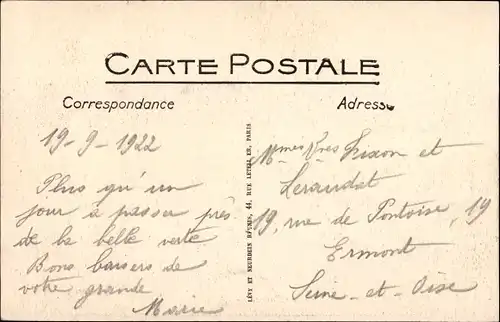 CARTE POSTALE
Correspondance
Adresse
19-9-1922
Plus qu'un
jour à passer près
de la belle verte
Bons baisers de
votre grande
Marie
LÉVY ET NEURDEIN RÉUNIS, 44, RUE LETELLIER, PARIS
Mmes Vves Sixon et
Leraudat
19, rue de Pontoise, 19
Ermont
Seine-et-Oise